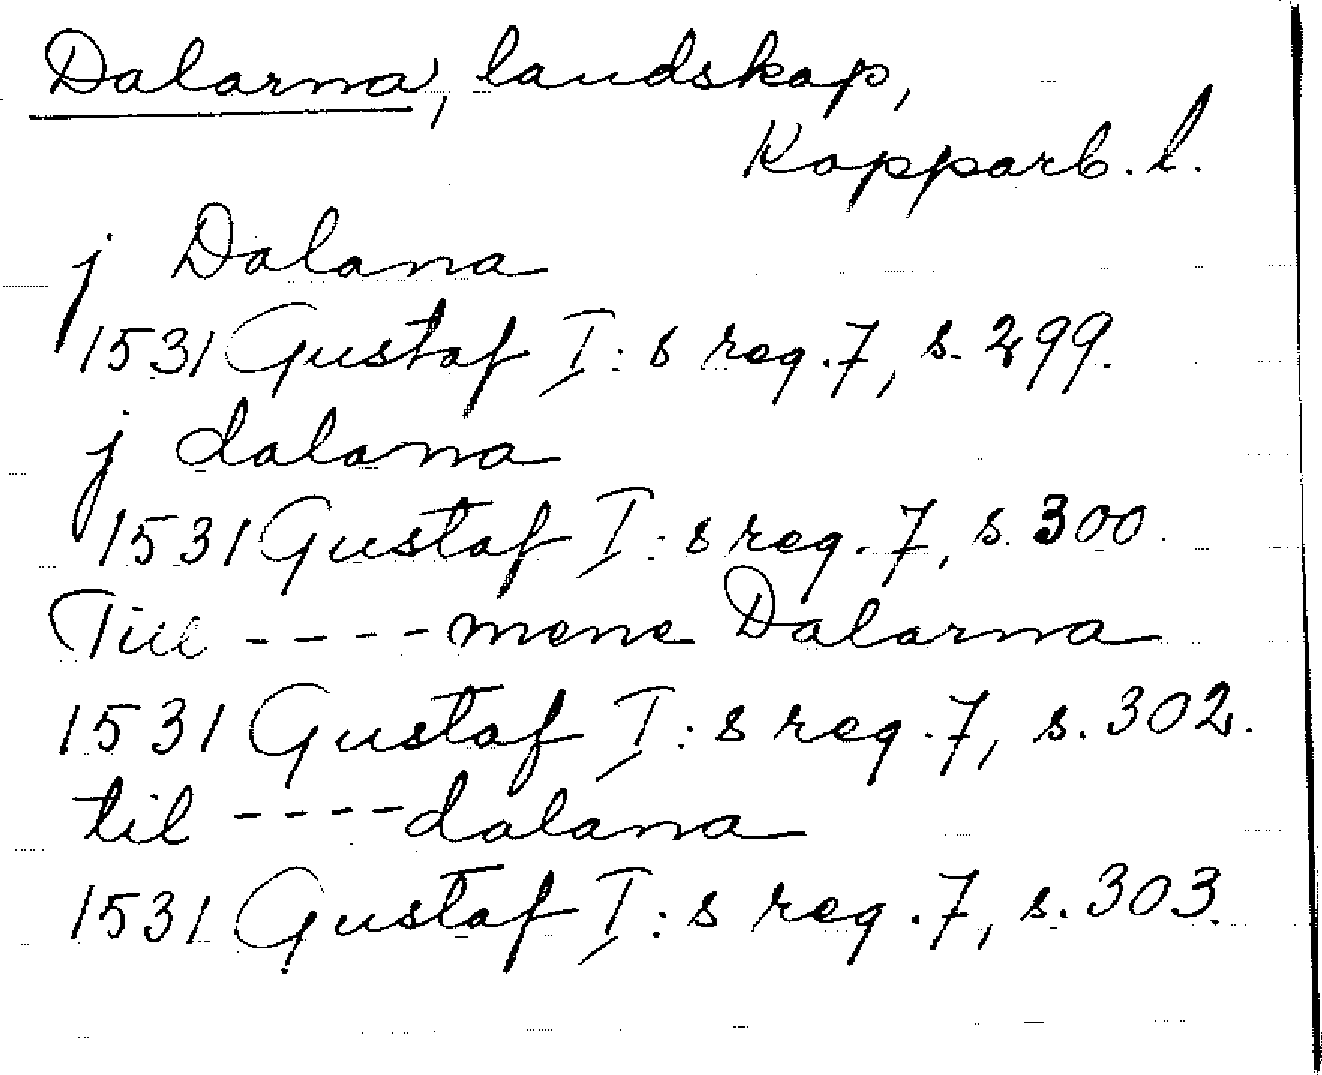 Dalarna, landskap,
Kopparb. l.
j Dalana
1531 Gustaf I:s reg. 7, s. 299.
j dalana
1531 Gustaf I:s reg. 7, s. 300.
Till ---- mene Dalarna
1531 Gustaf I:s reg. 7, s. 302.
til ---- dalana
1531 Gustaf I:s reg. 7, s. 303.